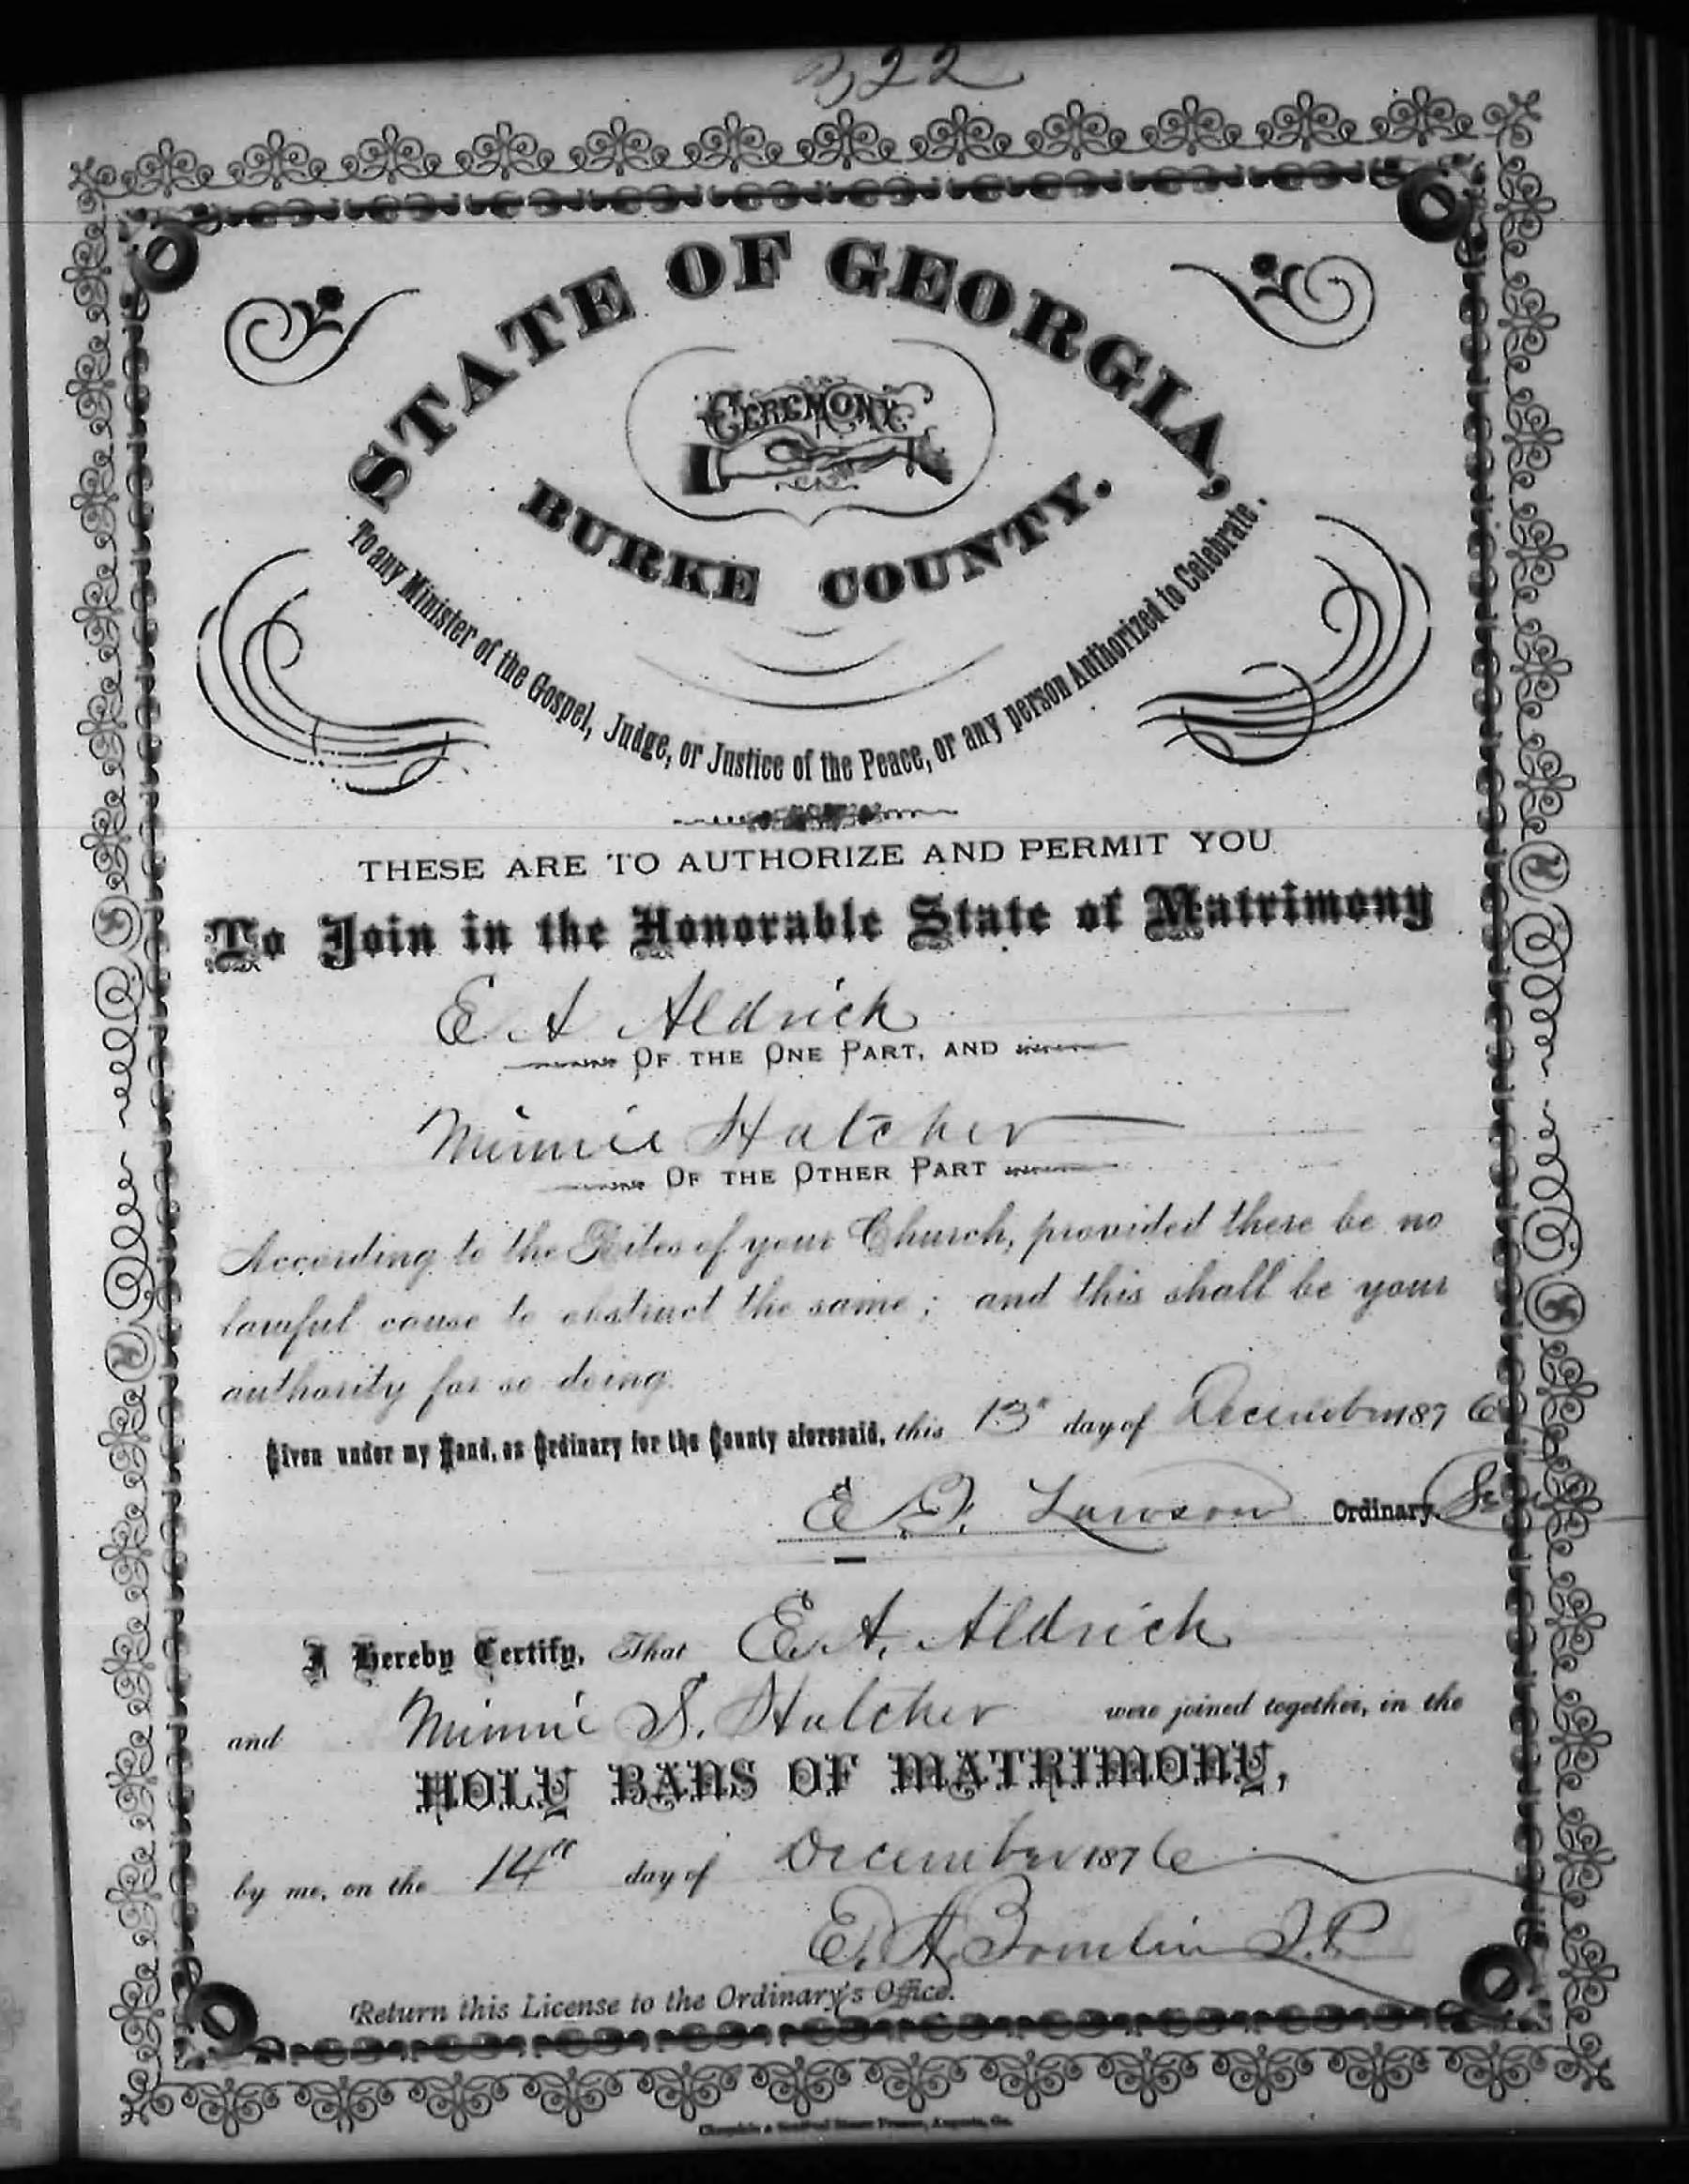 322
STATE OF GEORGIA,
CEREMONY
BURKE COUNTY.
To any Minister of the Gospel, Judge, or Justice of the Peace, or any person Authorized to Celebrate.
THESE ARE TO AUTHORIZE AND PERMIT YOU
To Join in the Honorable State of Matrimony
E. A Aldrich
OF THE ONE PART, AND
Minnie Hatcher
OF THE OTHER PART
According to the Rites of your Church, provided there be no
lawful cause to obstruct the same; and this shall be your
authority for so doing.
Given under my Hand, as Ordinary for the County aforesaid, this 13" day of December 1876
E. F. Lawson Ordinary.
I Hereby Certify, That E. A. Aldrich
and Minnie S. Hatcher were joined together, in the
HOLY BANS OF MATRIMONY,
by me, on the 14" day of December 1876
E. A. Tomlin J.P.
Return this License to the Ordinary's Office.
Chronicle & Sentinel Steam Presses, Augusta, Ga.